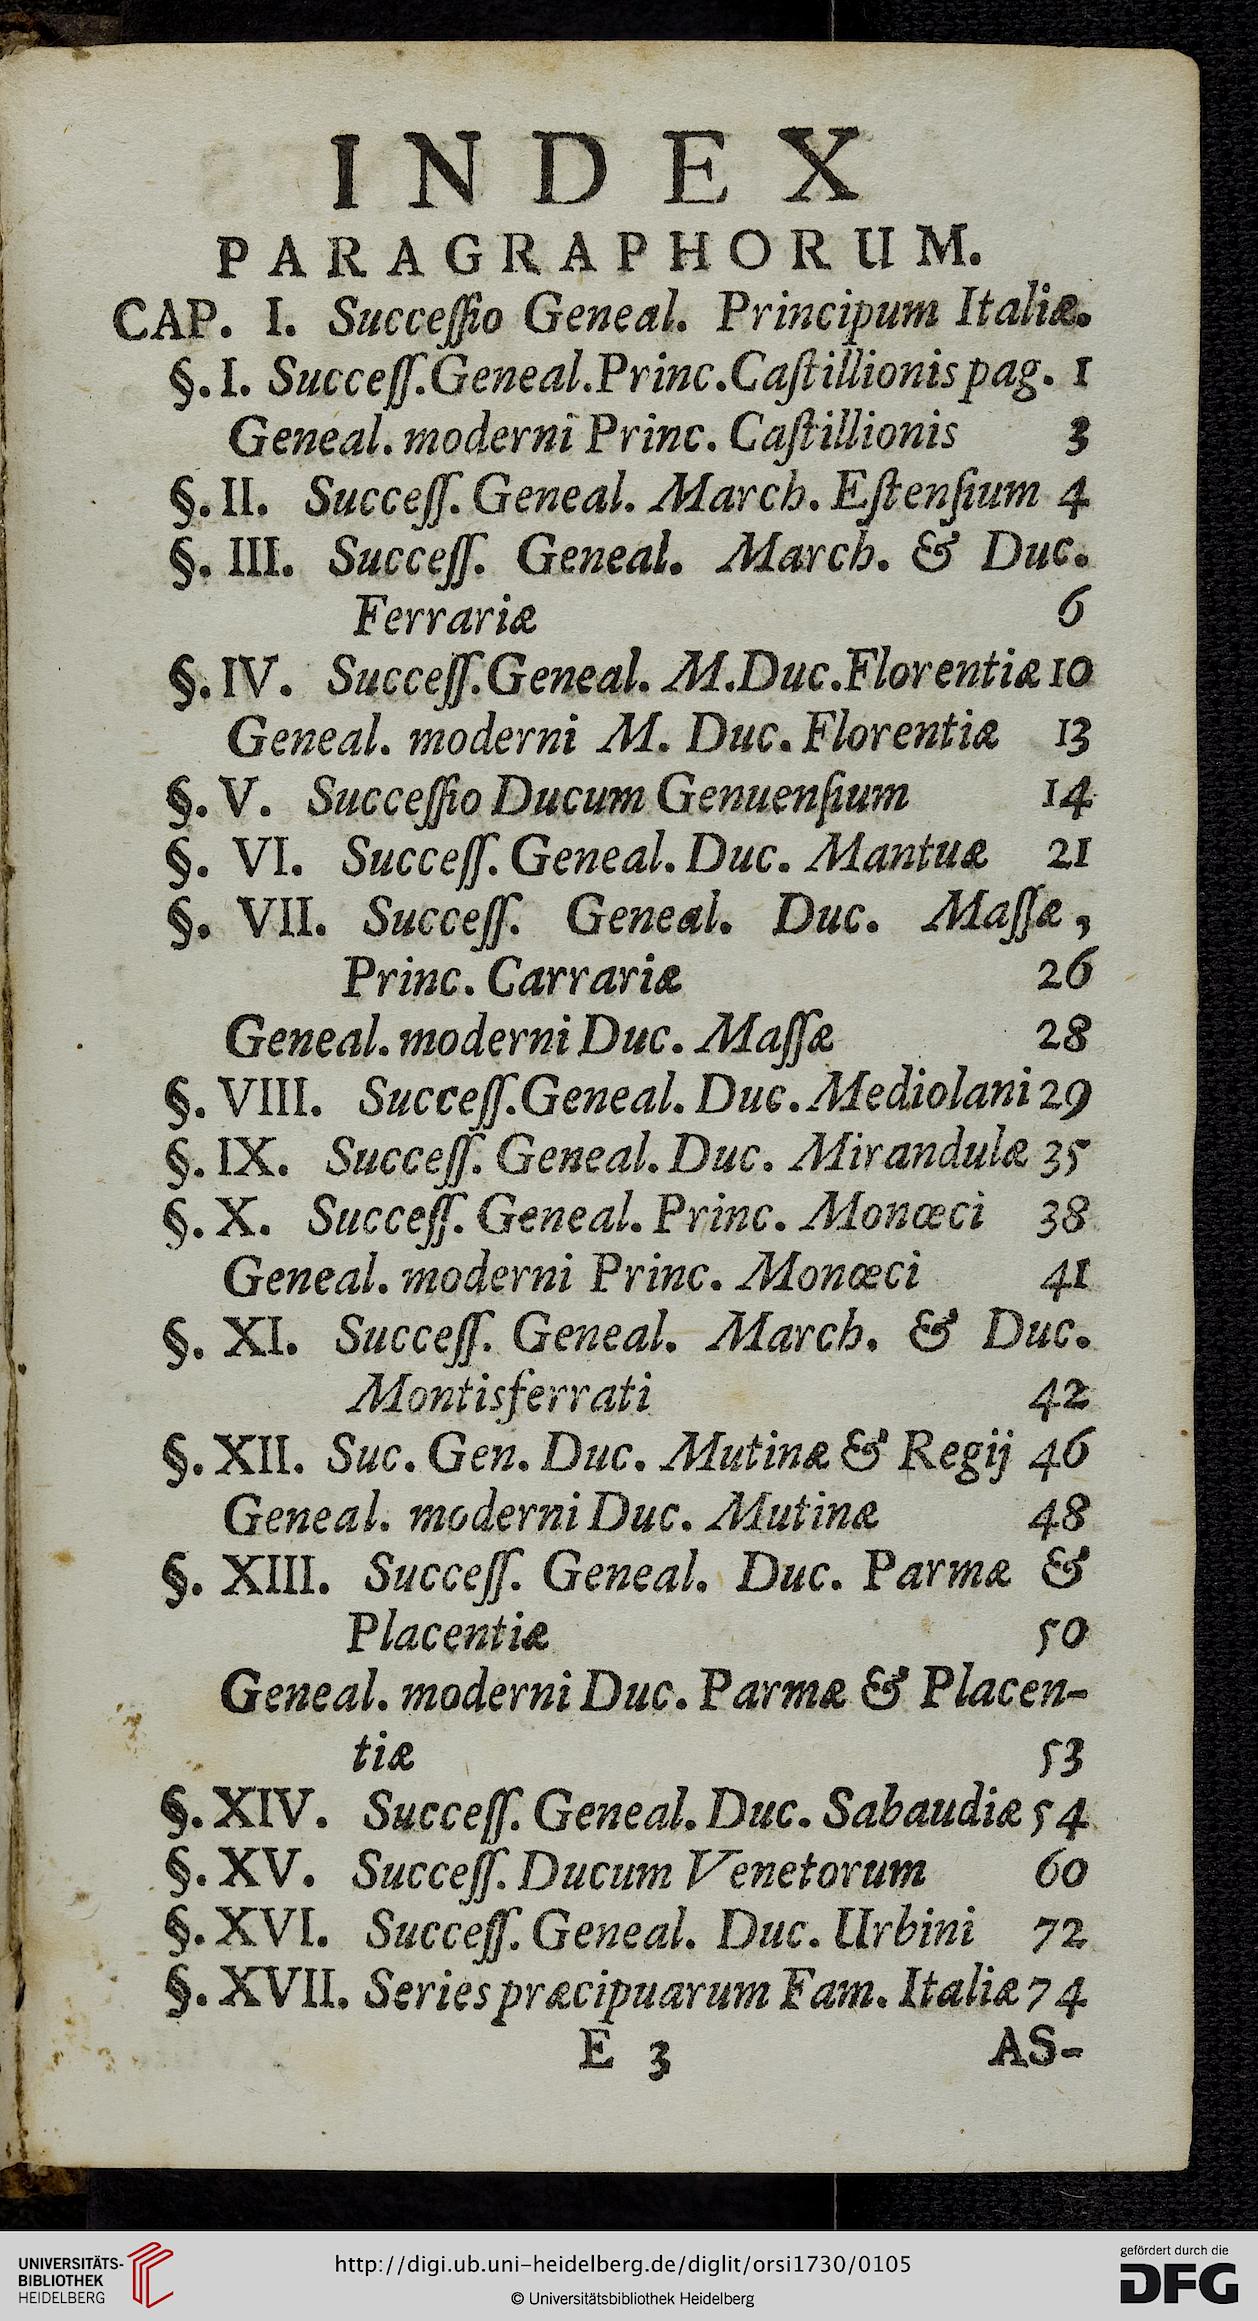 INDEX
PARAGRAPHORUM.
CAP. I. Succeſſio Geneal. Principum Italiæ.
§. I. Succeſſ. Geneal. Princ. Caſtillionis pag. 1
Geneal. moderni Princ. Caſtillionis 3
§. II. Succeſſ. Geneal. March. Eſtenſium 4
§. III. Succeſſ. Geneal. March. & Duc.
Ferrariæ 6
§. IV. Succeſſ. Geneal. M. Duc. Florentiæ 10
Geneal. moderni M. Duc. Florentiæ 13
§. V. Succeſſio Ducum Genuenſium 14
§. VI. Succeſſ. Geneal. Duc. Mantuæ 21
§. VII. Succeſſ. Geneal. Duc. Maſſæ,
Princ. Carrariæ 26
Geneal. moderni Duc. Maſſæ 28
§. VIII. Succeſſ. Geneal. Duc. Mediolani 29
§. IX. Succeſſ. Geneal. Duc. Mirandulæ 35
§. X. Succeſſ. Geneal. Princ. Monœci 38
Geneal. moderni Princ. Monœci 41
§. XI. Succeſſ. Geneal. March. & Duc.
Montisferrati 42
§. XII. Suc. Gen. Duc. Mutinæ & Regij 46
Geneal. moderni Duc. Mutinæ 48
§. XIII. Succeſſ. Geneal. Duc. Parmæ &
Placentiæ 50
Geneal. moderni Duc. Parmæ & Placen-
tiæ 53
§. XIV. Succeſſ. Geneal. Duc. Sabaudiæ 54
§. XV. Succeſſ. Ducum Venetorum 60
§. XVI. Succeſſ. Geneal. Duc. Urbini 72
§. XVII. Series præcipuarum Fam. Italiæ 74
E 3 AS-
UNIVERSITÄTS-
BIBLIOTHEK
HEIDELBERG
http://digi.ub.uni-heidelberg.de/diglit/orsi1730/0105
© Universitätsbibliothek Heidelberg
gefördert durch die
DFG